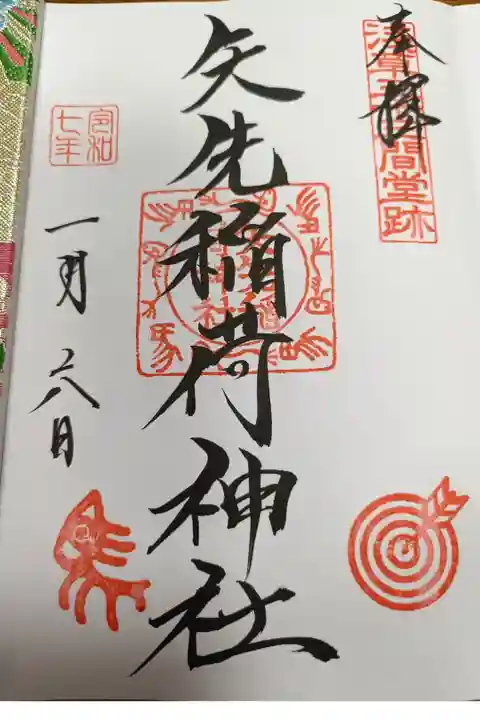 奉拝
浅草三十三間堂跡
矢先稲荷神社
令和七年
一月
日